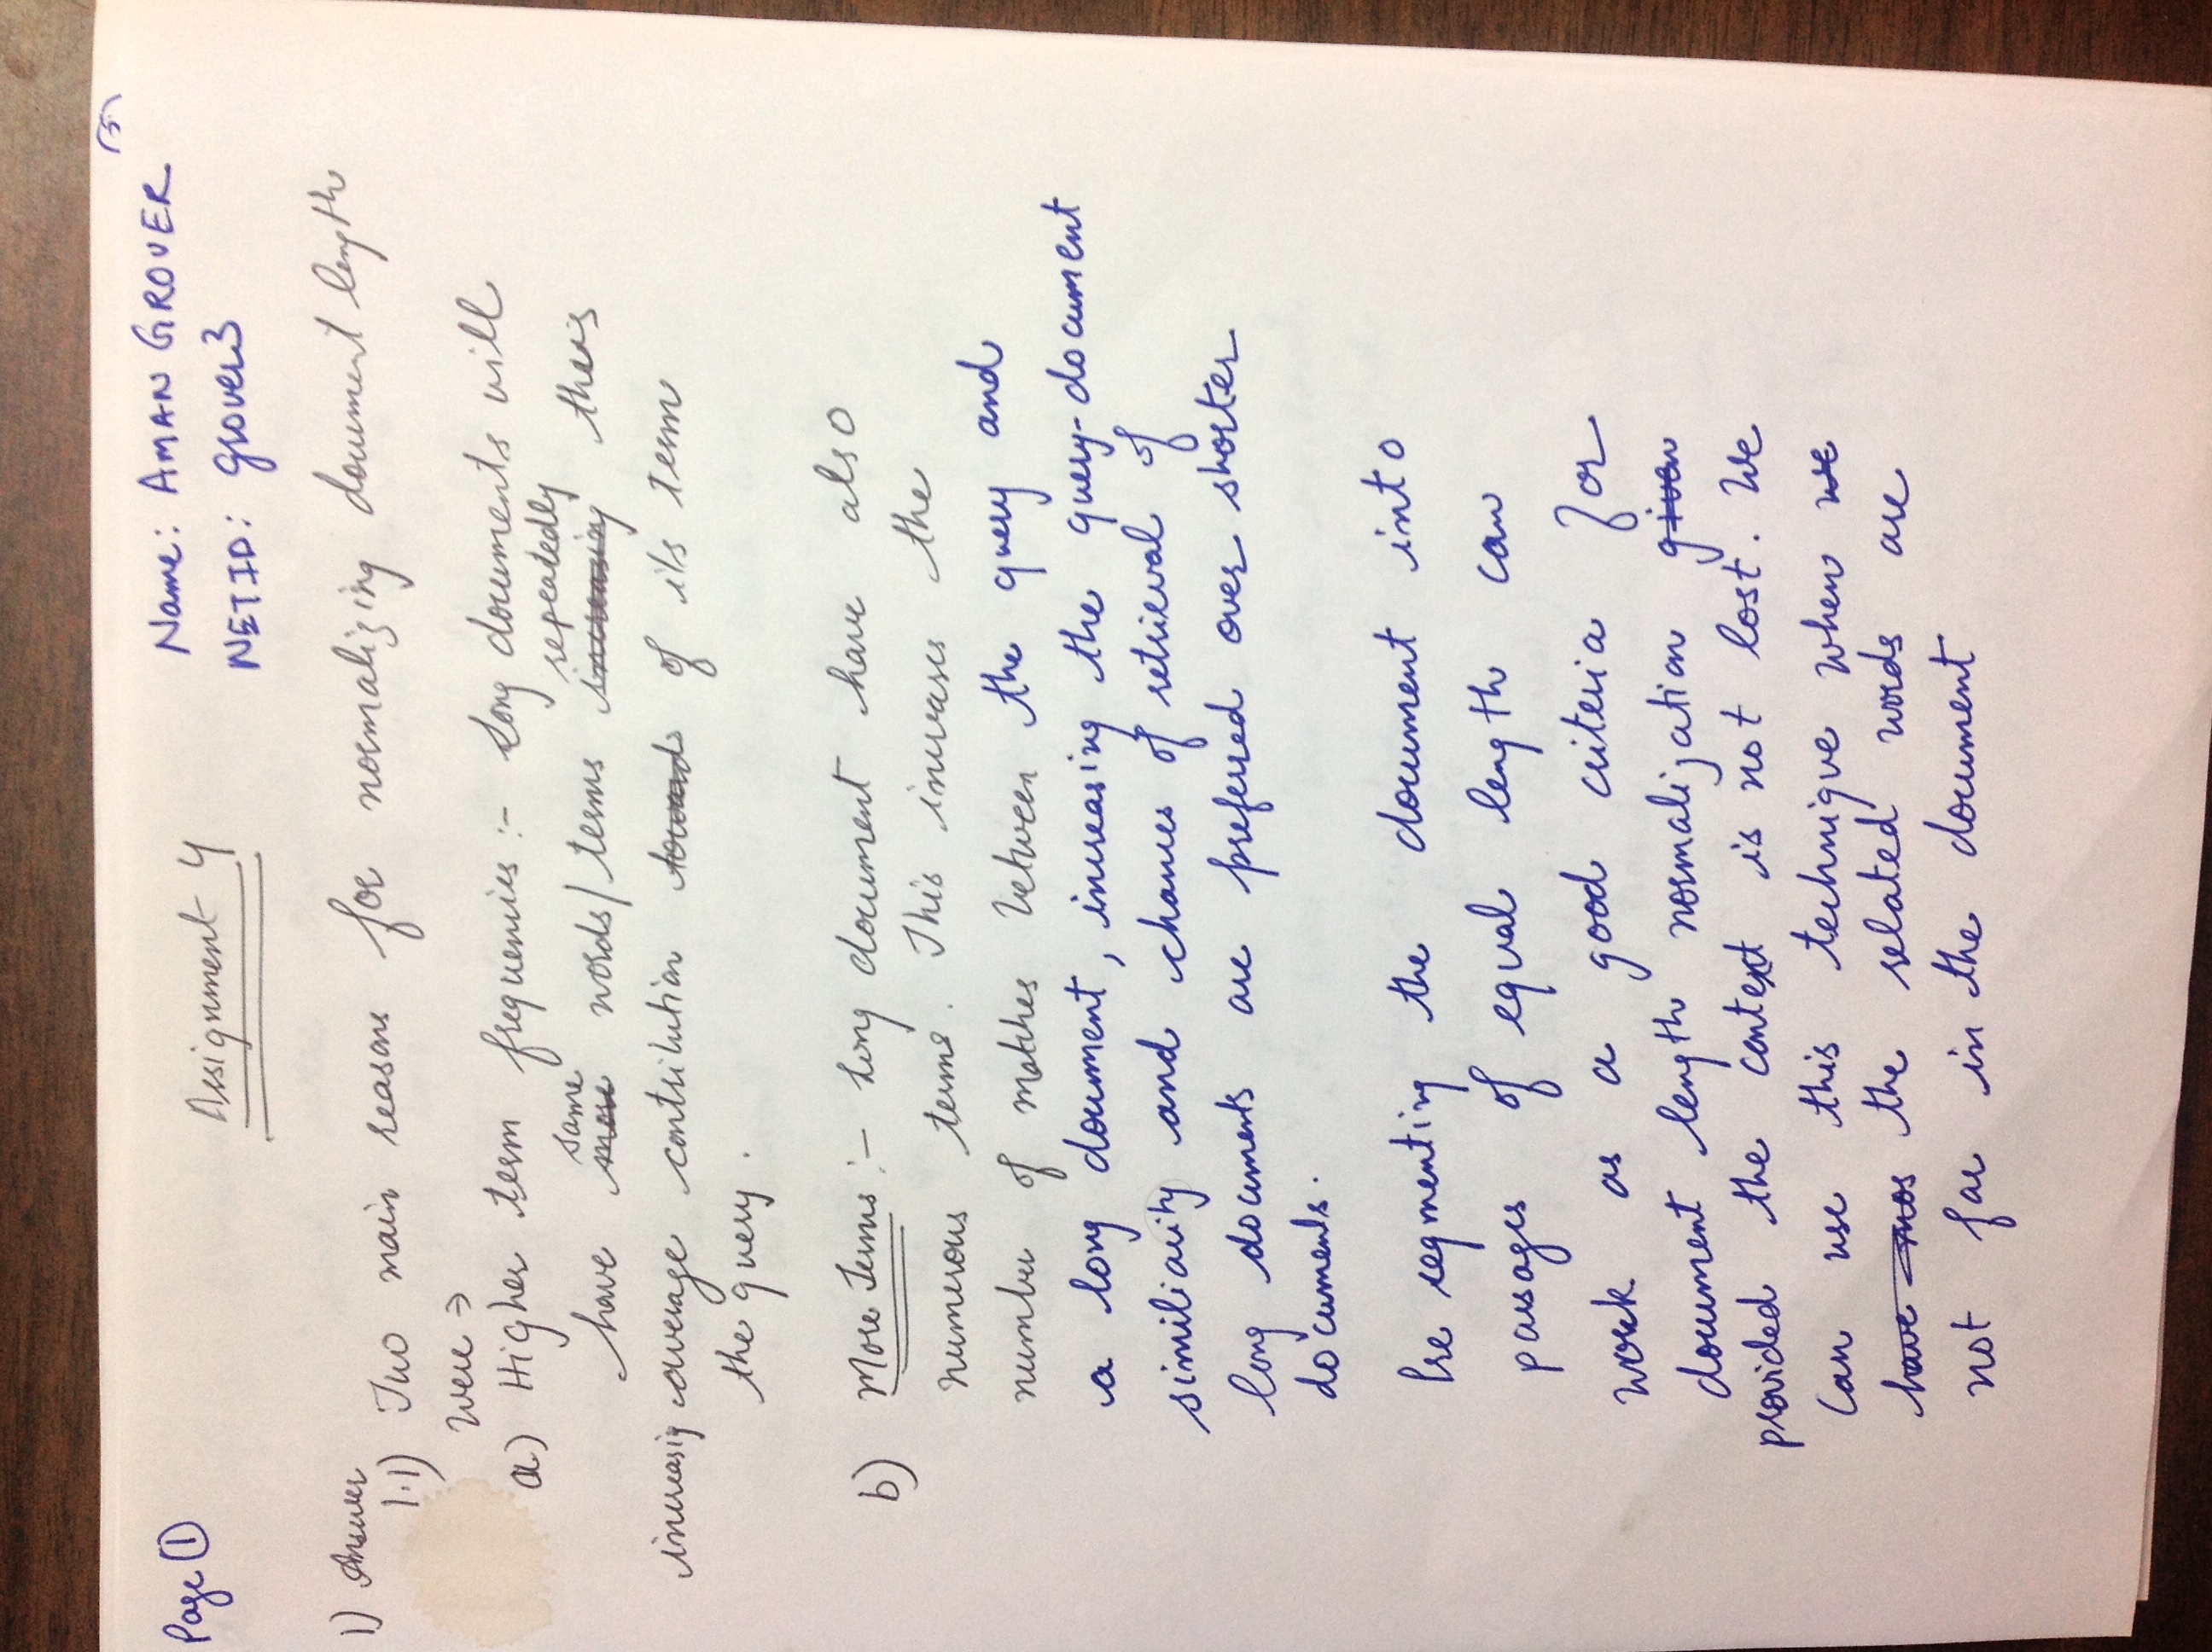 (5)
Page ①
Name: AMAN GROVER
Assignment 4
NETID: grover3
1) Answer
1.1) Two main reasons for normalizing document length
were ⇒
a) Higher term frequencies :- Long documents will
same repeatedly
have ~~more~~ words/terms ~~increasing~~ thus
increasig average contribution ~~towards~~ of its term
the query.
b) More Terms :- Long document have also
numerous terms. This increases the
number of matches between the query and
a long document, increasing the query-document
similiarity and chances of retrieval of
long documents are preferred over shorter
documents.
Pre segmenting the document into
passages of equal length can
work as a good criteria for
document length normalization ~~given~~
provided the context is not lost. We
can use this technique when ~~we~~
~~have mos~~ the related words are
not far in the document